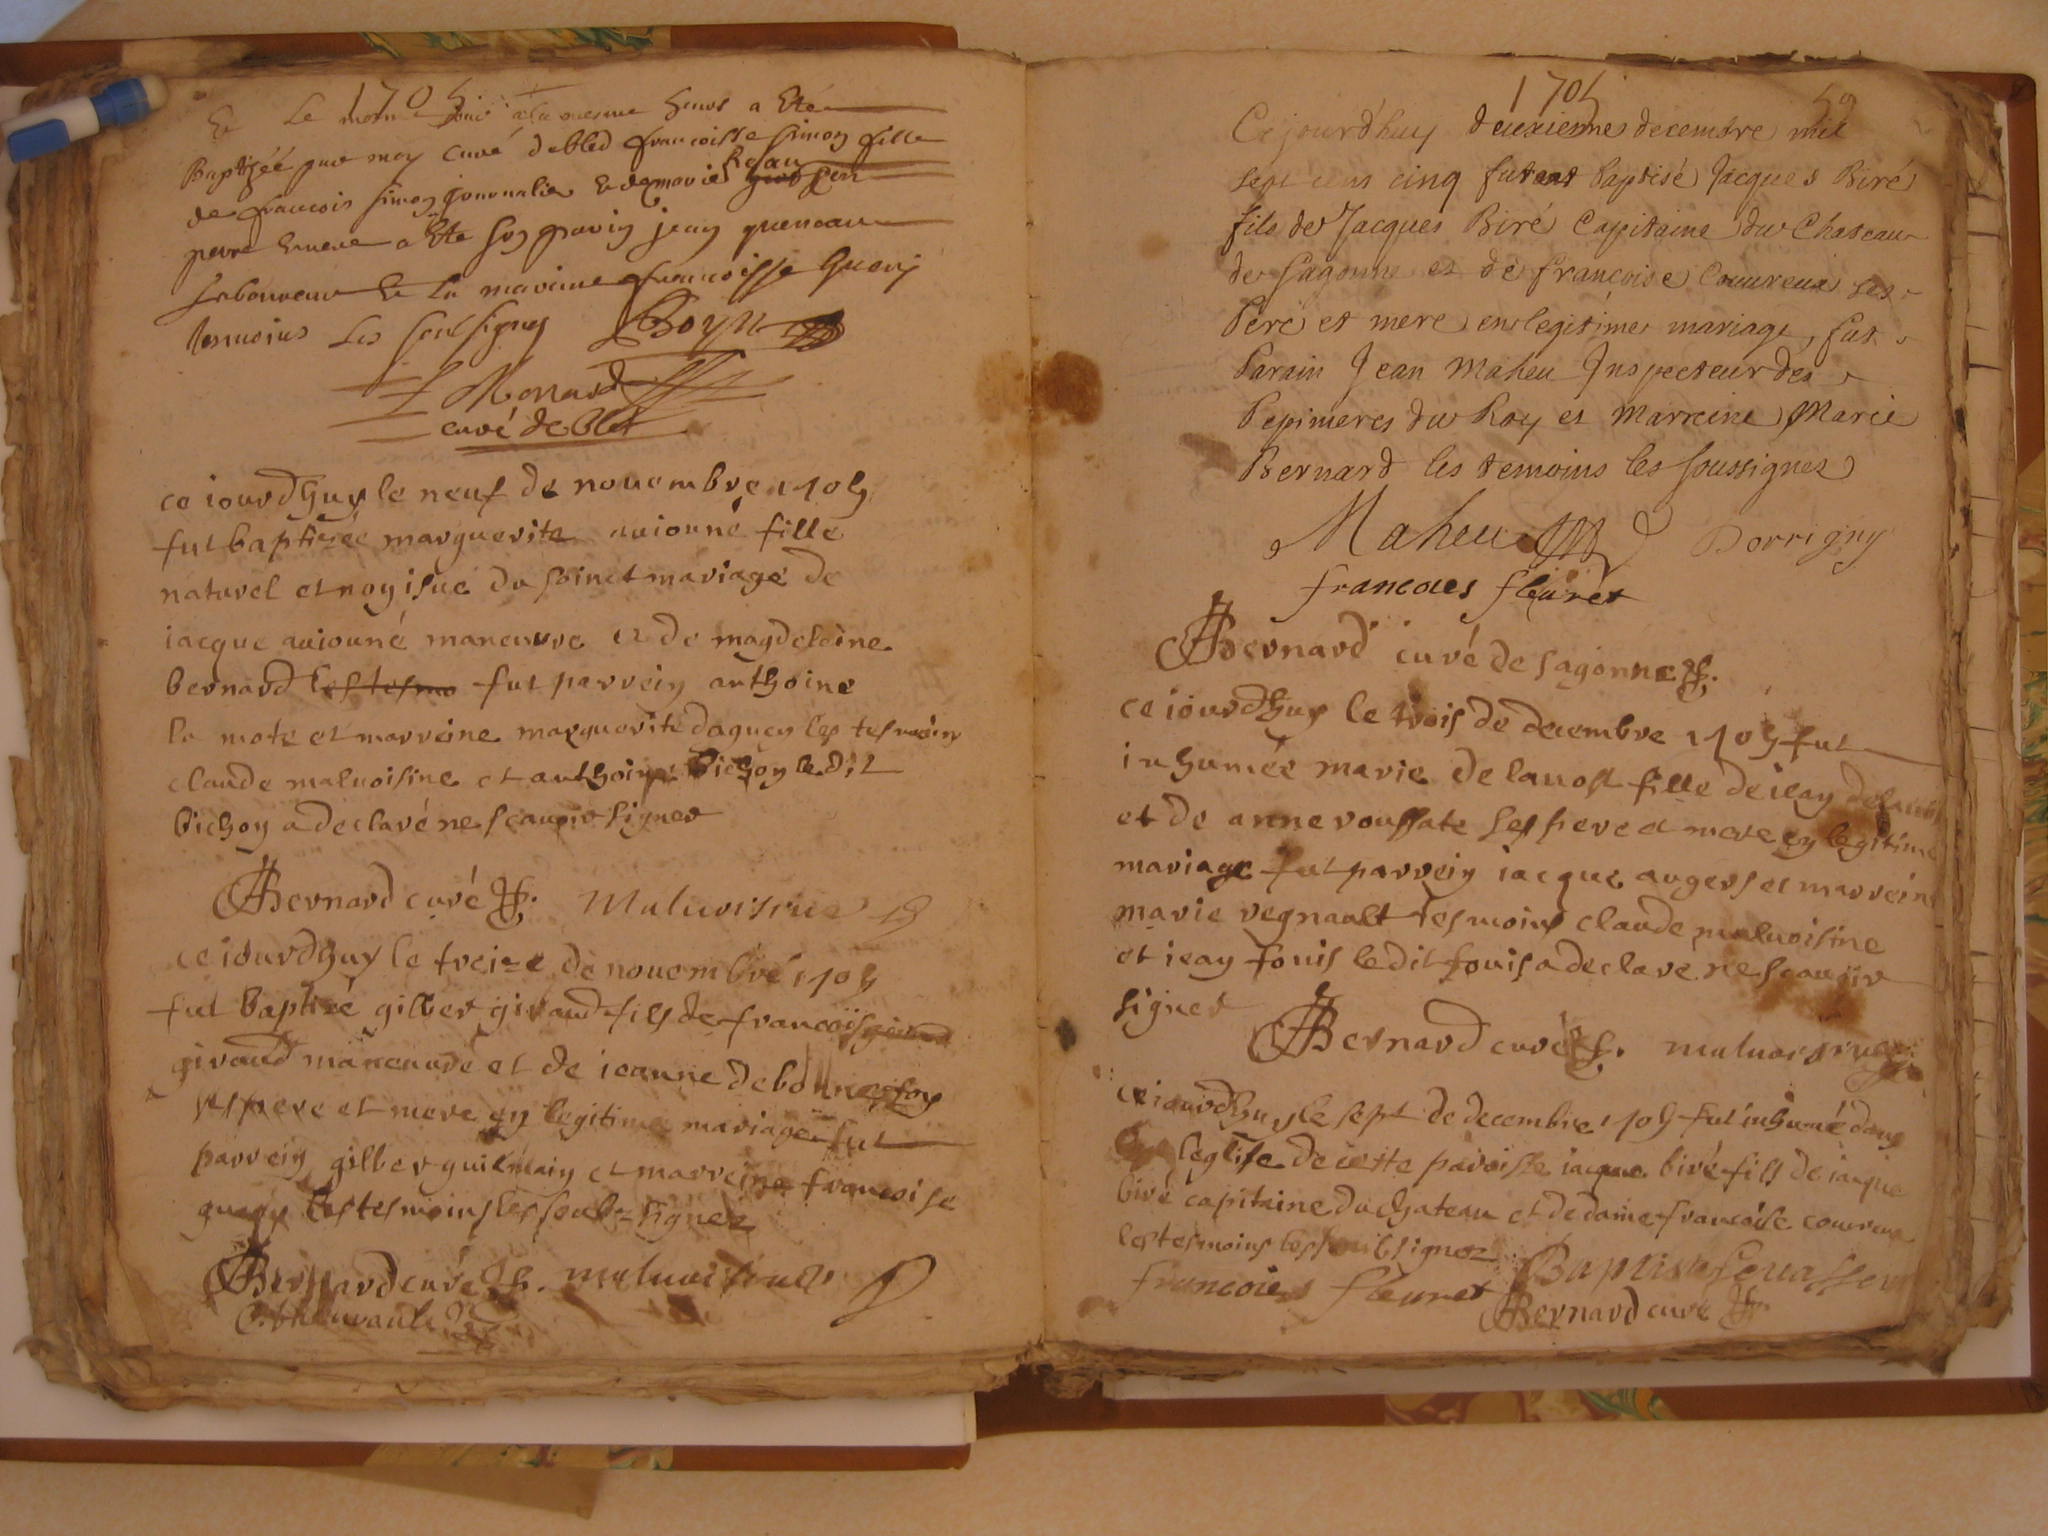 1705
Et Le mesme Jour a la mesme heure a Eté
Baptizéé par moy curé debled francoisse simon fille
de francois simon journalie Et de marie
pere Et mere a Ete son parin jean queneau
Laboureur Et la marinne francoisse Guerij
tesmoins Les soulsignes Boyn
Monard
curé de blet
ce iourdhuy le neuf de nouembre 1705
fut baptizée marguerite auiouné fille
naturel et noy isué du sainct mariage de
iacque auiouné maneuvre et de magdeleine
bernard les tesmo fut parrein anthoine
la mote et marreine marguerite daguey les tesmoins
claude maluoisine et anthoine bichoy le dit
bichoy a declaré ne scauoir signer
Bernard curé Maluoisine
ce iourdhuy le treize de nouembre 1705
fut baptizé gilber giraud fils de francois giraud
giraud maneuure et de ieanne debonnefoy
ses pere et mere en legitime mariage fut
parrein gilber guilmain et marreine francoise
les tesmoins les soubz signez
Bernard curé maluoisine
1705
59
Cejourd'huy deuxiesme decembre mil
sept cens cinq futent baptisé Jacques Biré
fils de Jacques Biré Capitaine du Chateau
de Sagonne et de françoise Couureux ses
Pere et mere en legitime mariage, fut
Parain Jean Maheu Inspecteur des
Pepinieres du Roy et Marreine Marie
Bernard les temoins les soussignez
Maheu Dorrigny
francoies fleuret
Bernard curé de sagonne
ce iourdhuy le trois de decembre 1705 fut
inhumée marie de lauost fille de iean delauost
et de anne roussate ses pere et mere en legitime
mariage fut parrein iacque augers et marreine
marie regnault tesmoins claude maluoisine
et iean fouis le dit fouis a declare ne scauoir
signer
Bernard curé maluoisine
ce iourdhuy le sept de decembre 1705 fut inhumé dans
leglise de cette paroisse iacque biré fils de iacque
biré capitaine du chateau et de dame francoise couureux
les tesmoins les soubsignez
francoies fleuret Baptiste leuasseur
Bernard curé